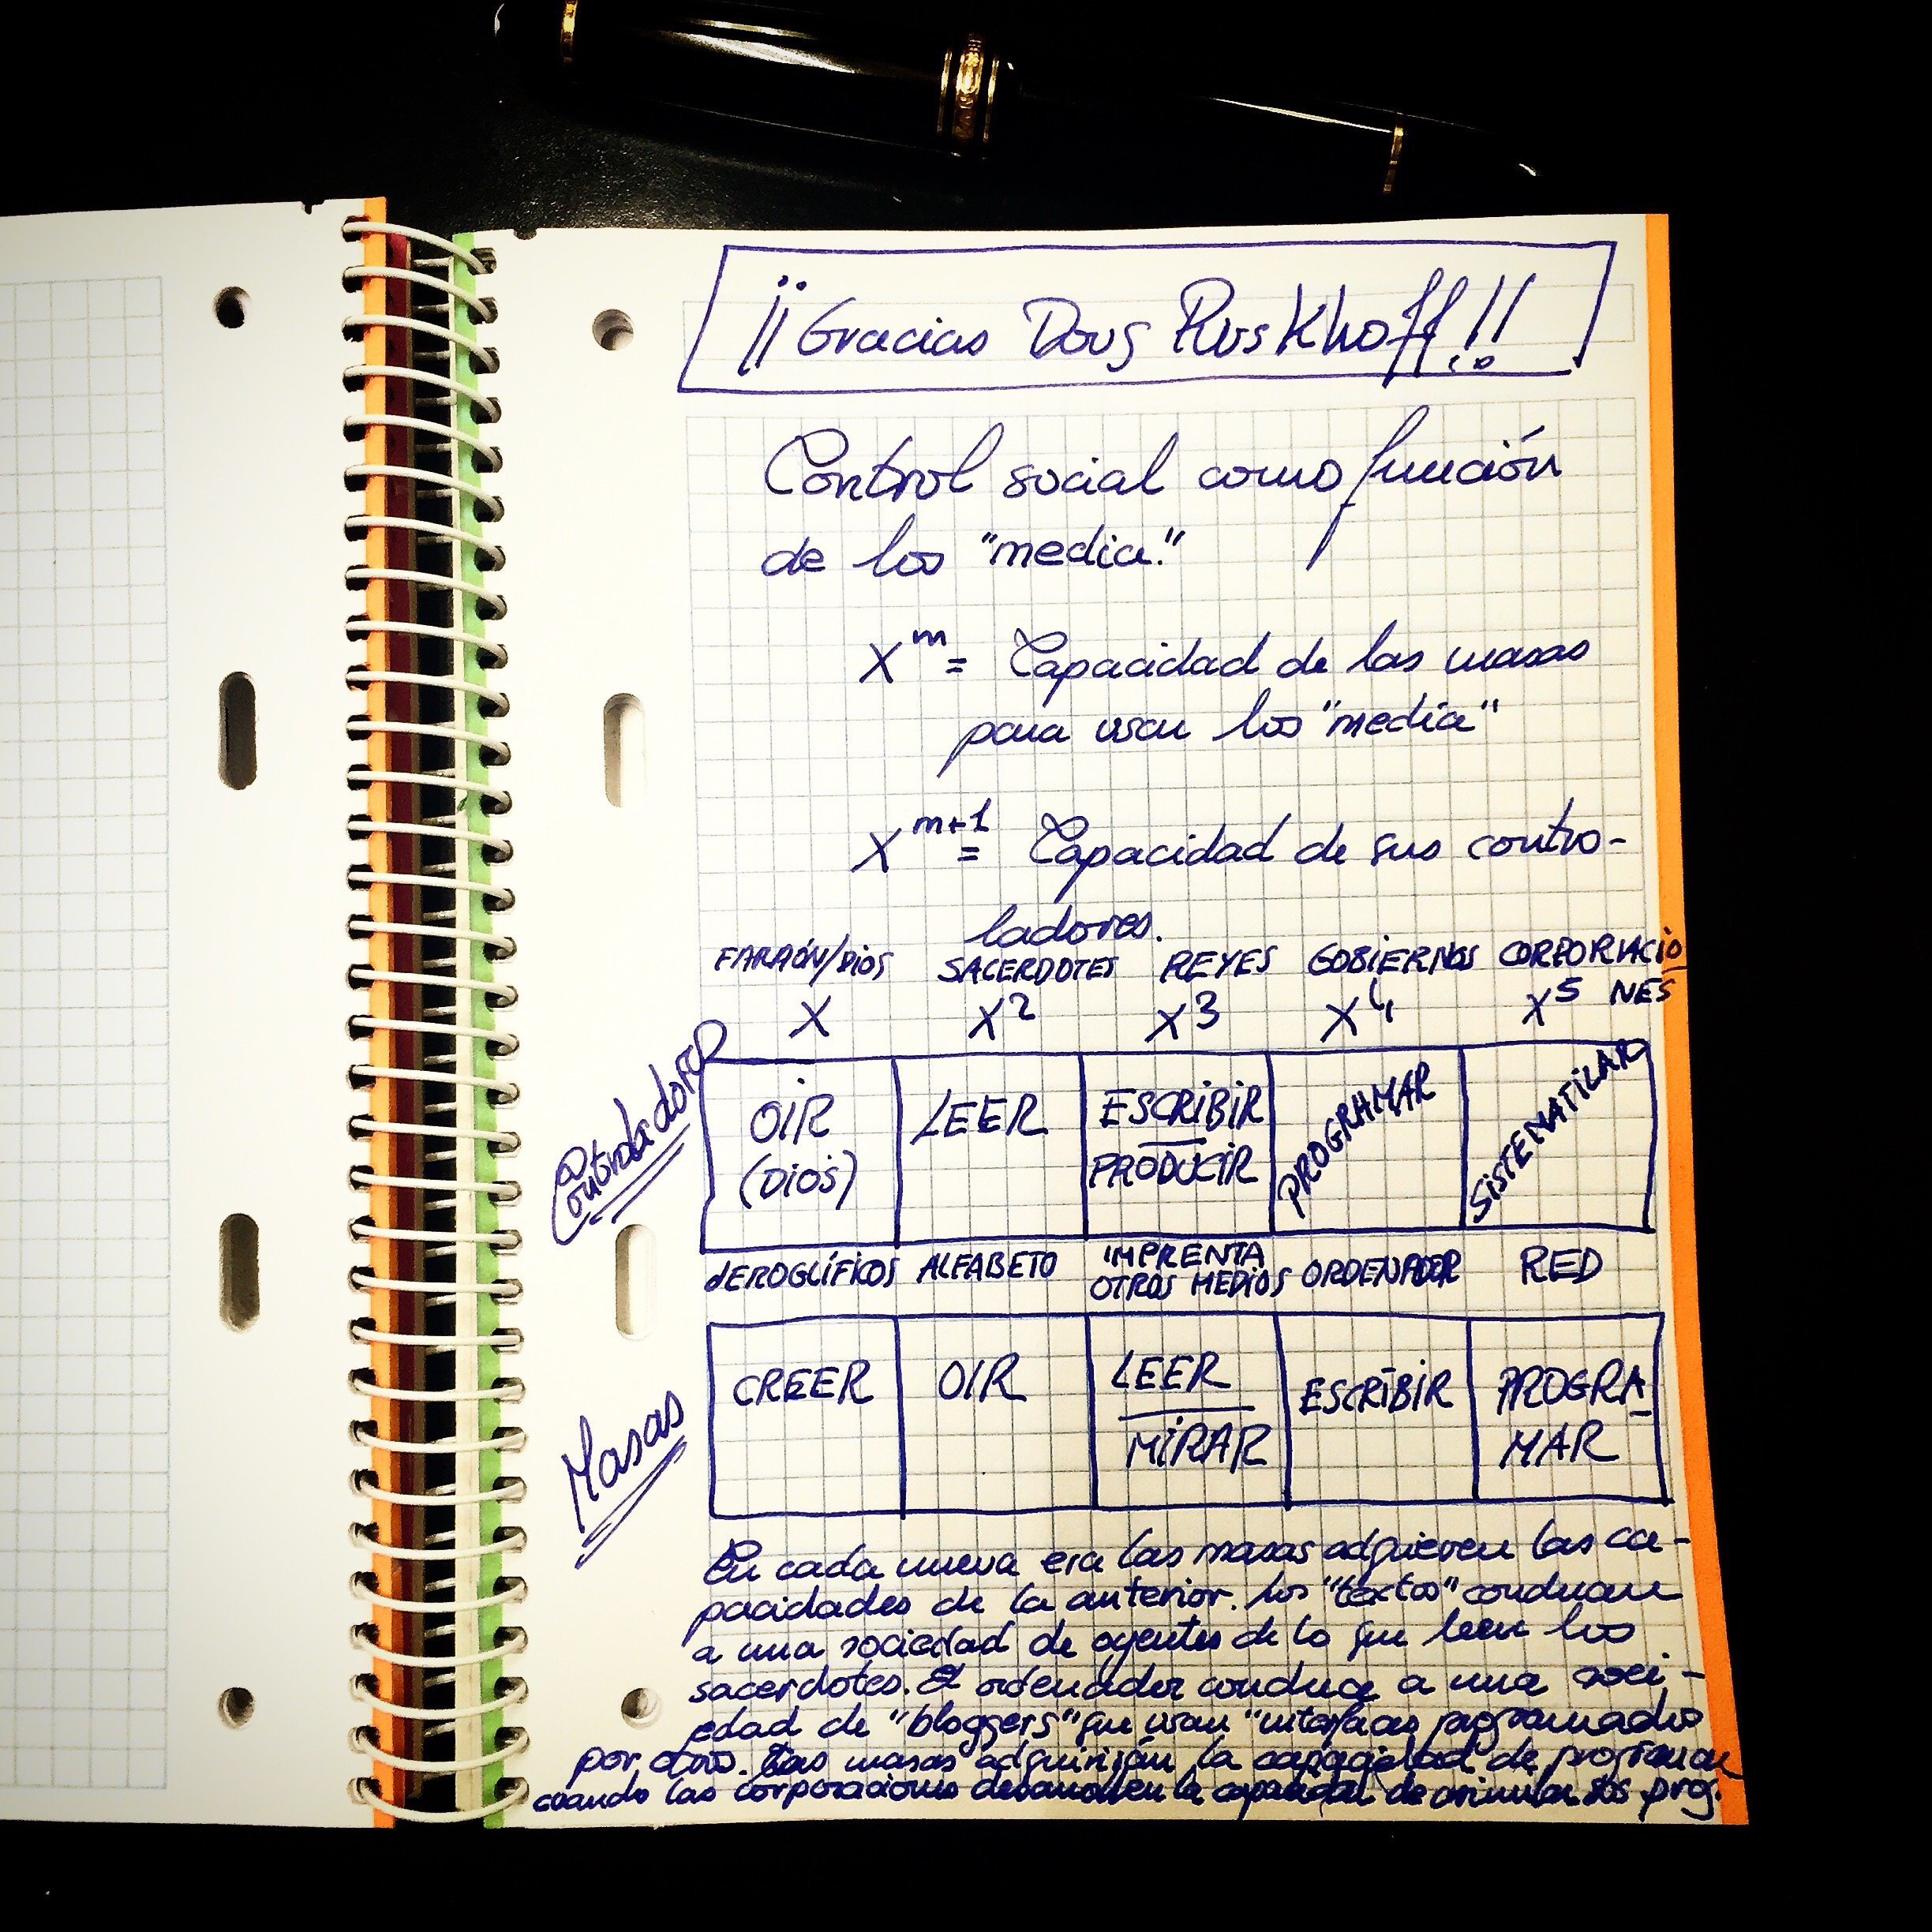 ¡¡Gracias Doug Ruskhoff!!
Control social como función
de los "media."
X^m = Capacidad de las masas
para usar los "media"
X^m+1 = Capacidad de sus contro-
ladores.
FARAÓN/DIOS SACERDOTES REYES GOBIERNOS CORPORACIO
NES
X X2 X3 X4 X5
Controladores
OIR LEER ESCRIBIR PROGRAMAR SISTEMATIZAR
(DIOS) PRODUCIR
JEROGLÍFICOS ALFABETO IMPRENTA ORDENADOR RED
OTROS MEDIOS
Masas
CREER OIR LEER ESCRIBIR PROGRA-
MIRAR MAR
En cada nueva era las masas adquieren las ca-
pacidades de la anterior. Los "textos" conducen
a una sociedad de oyentes de lo que leen los
sacerdotes. El ordenador conduce a una soci-
edad de "bloggers" que usan "interfaces programados
por otros. Las masas adquirirán la capacidad de programar
cuando las corporaciones desarrollen la capacidad de sus prog.